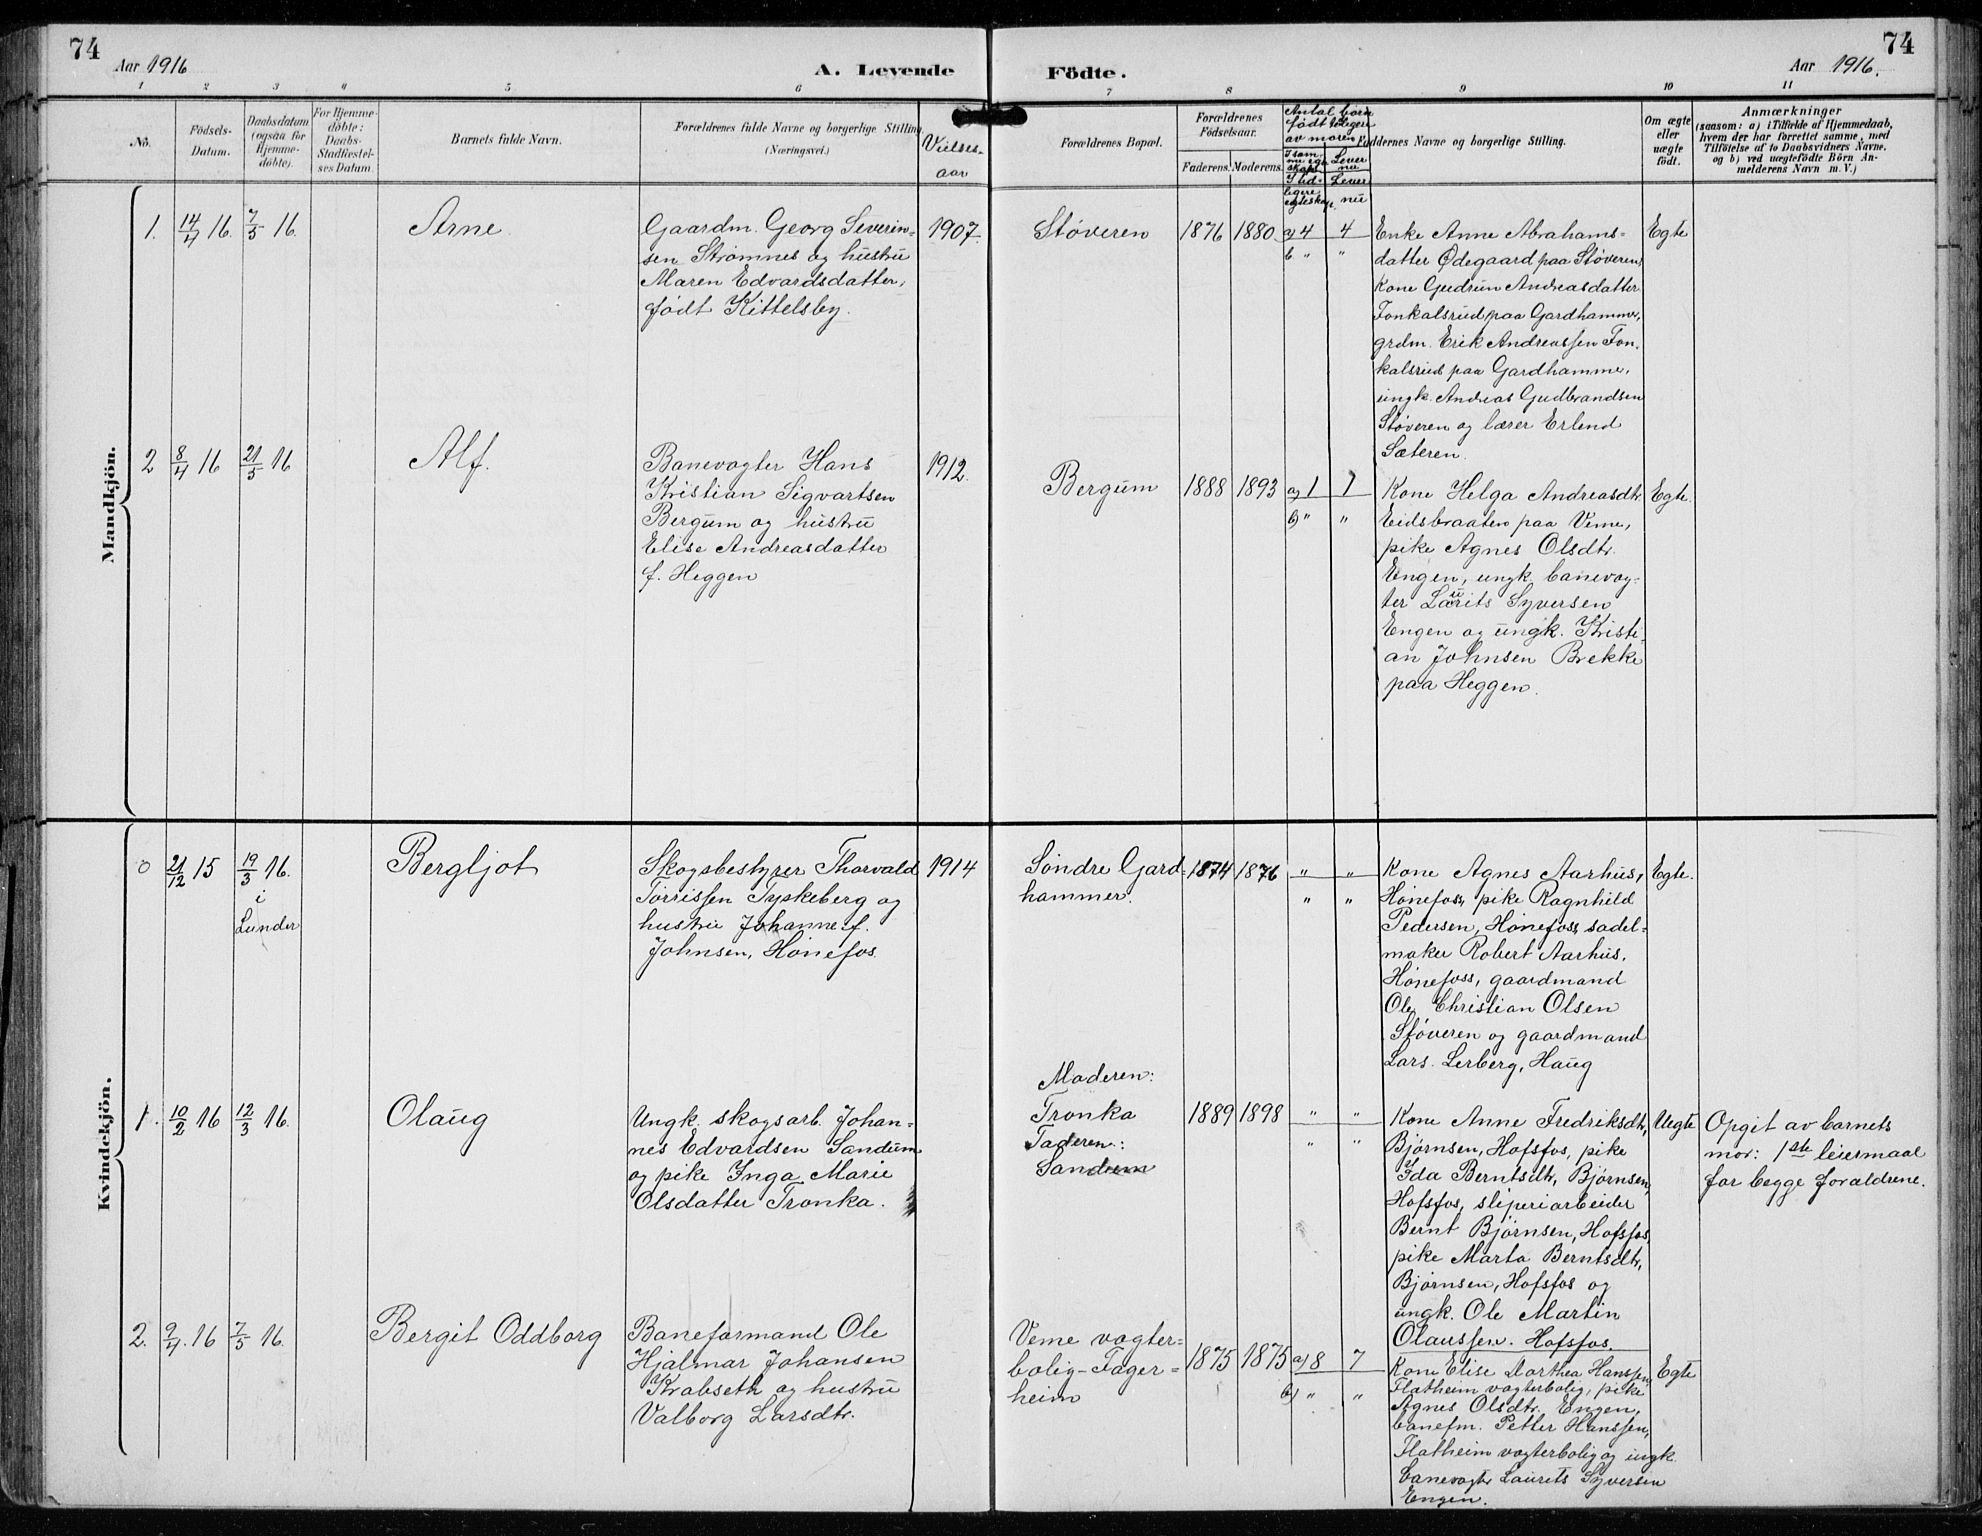 74
Aar 1916
A. Levende
Födte.
74
Aar 1916.
1 2 3 4 5 6 7 8 9 10 11
No.
Födsels-
Datum.
Daabsdatum
(ogsaa for
Hjemme-
döbte).
For Hjemme-
döbte:
Daabs-
Stadfæstel-
ses Datum.
Barnets fulde Navn.
Forældrenes fulde Navne og borgerlige Stilling
(Næringsvei.)
Vielses-
aar
Forældrenes Bopæl.
Forældrenes
Födselsaar.
Faderens. Moderens.
Antal børn
født tidligere
av moren
Faddernes Navne og borgerlige Stilling.
Om ægte
eller
uægte
födt.
Anmærkninger
(saasom: a) i Tilfælde af Hjemmedaab,
hvem der har forrettet samme, med
Tilföielse af to Daabsvidners Navne.
og b) ved uægtefödte Börn An-
melderens Navn m. V.)
Mandkjön.
1. 14/4 16. 7/5 16.
Arne.
Gaardm. Georg Severin-
sen Strømnes og hustru
Maren Edvardsdatter,
født Kittelsby.
1907.
Støveren
1876 1880 a) 4 4
b " "
Enke Anne Abrahams-
datter Ødegaard paa Støveren,
Kone Gudrun Andreasdatter
Fonkalsrud paa Gardhammer,
grdm. Erik Andreassen Fon-
kalsrud paa Gardhammer,
ungk. Andreas Gudbrandsen
Støveren og lærer Erlend
Sæteren.
Egte
2 8/4 16 21/5 16
Alf.
Banevogter Hans
Kristian Sigvartsen
Bergum og hustru
Elise Andreasdatter
f. Heggen
1912.
Bergum
1888 1893 a) 1 1
b) " "
Kone Helga Andreasdtr.
Eidsbraaten paa Veme,
pike Agnes Olsdtr.
Engen, ungk. banevog-
ter Laurits Syversen
Engen og ungk. Kristi-
an Johnsen Brekke
paa Heggen.
Egte.
Kvindekjön.
0 21/12 15 19/3 16.
i
Lunder
Bergljot
Skogsbestyrer Thorvald
Torrissen Tyskeberg og
hustru Johanne f.
Johnsen, Hønefos.
1914
Søndre Gard-
hammer.
1874 1876 " "
" "
Kone Agnes Aarhus,
Hønefoss, pike Ragnhild
Pedersen, Hønefoss, sadel-
maker Robert Aarhus,
Hønefoss, gaardmand
Ole Christian Olsen
Støveren og gaardmand
Lars Lerberg, Haug
Egte.
1. 10/2 16 12/3 16.
Olaug
Ungk. skogsarb. Johan-
nes Edvardsen Sandum
og pike Inga Marie
Olsdatter Tronka.
Moderen:
Tronka
Faderen:
Sandum
1889 1898 " "
" "
Kone Anne Fredriksdtr,
Bjørnsen, Hofsfos, pike
Ida Berntsdtr, Bjørnsen,
Hofsfos, sliperiarbeider
Bernt Bjørnsen, Hofsfos,
pike Marta Berntsdtr,
Bjørnsen, Hofsfos og
ungk. Ole Martin
Olaussen. Hofsfos.
Uegte
Opgit av barnets
mor: 1ste leiermaal
for begge forældrene.
2. 9/4. 16 7/5 16.
Bergit Oddborg
Baneformand Ole
Hjalmar Johansen
Krabseth og hustru
Valborg Larsdtr.
Veme vogter-
bolig - Fager-
heim
1875 1875 a) 8 7
b) " "
Kone Elise Dorthea Hanssen,
Flatheim vogterbolig, pike
Agnes Olsdtr. Engen,
banefm. Petter Hanssen,
Flatheim vogterbolig og ungk.
banevogter Laurits Syversen
Engen.
Egte